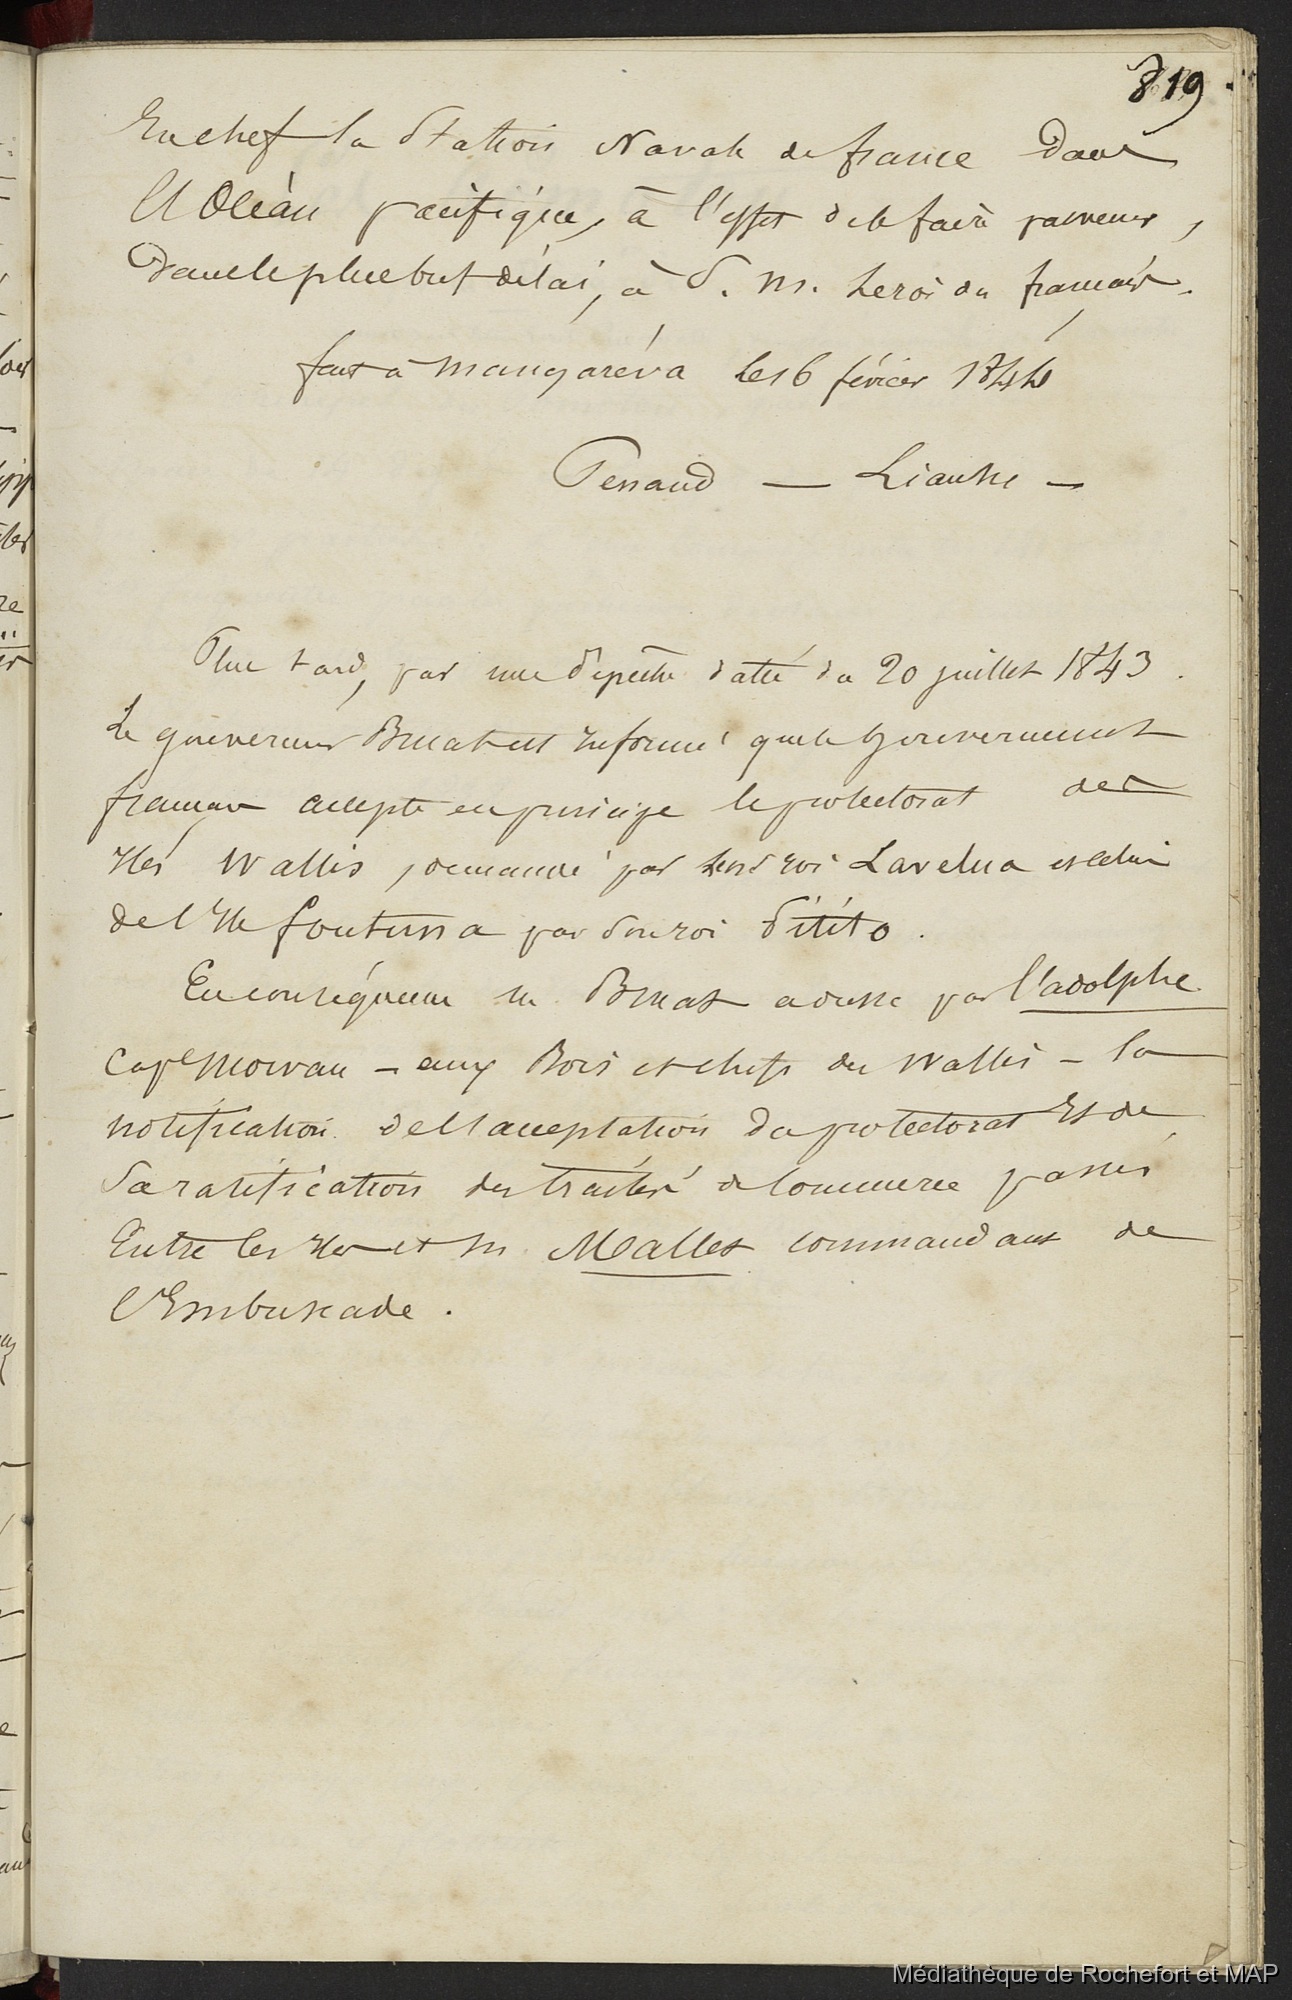 819
En chef la Station Navale de france dans
l'Océan pacifique, à l'effet de le faire parvenir,
dans le plus bref délai, à S. M. le roi des français.
fait à Mangaréva le 16 février 1844
Penaud — Liausu —
Plus tard, par une dépêche datée du 20 juillet 1843.
Le gouverneur Bruat est informé que le gouvernement
français accepte en principe le protectorat des
Iles Wallis, demandé par leur roi Lavelua et celui
de l'Ile foutuna par son roi
En conséquence M. Bruat adresse par l'adolphe
Cape Morvan — aux Rois et chefs des Wallis — la
notification de l'acceptation du protectorat Et de
Sa ratification des traités de Commerce passés
Entre les Iles et M. Mallet commandant de
l'Embuscade.
Médiathèque de Rochefort et MAP